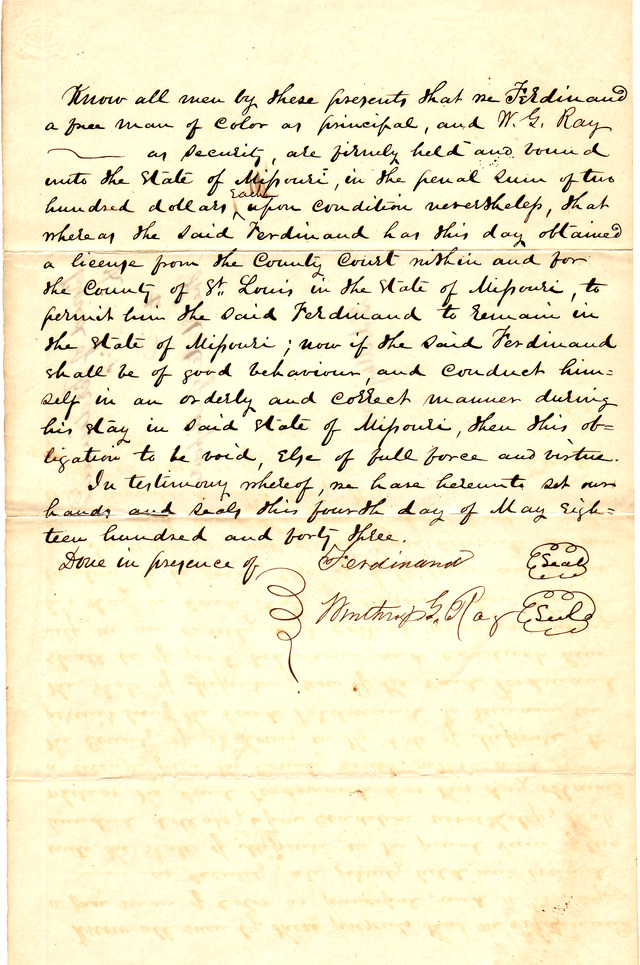 Know all men by these presents that we Ferdinand
a free man of color as principal, and W. G. Ray
—— as security, are firmly held and bound
unto the State of Missouri, in the penal sum of two
hundred dollars, upon condition nevertheless, that
whereas the said Ferdinand has this day obtained
a license from the County Court within and for
the County of St. Louis in the State of Missouri, to
permit him the said Ferdinand to remain in
the State of Missouri; now if the said Ferdinand
shall be of good behaviour, and conduct him=
self in an orderly and correct manner during
his stay in said State of Missouri, then this ob=
ligation to be void, Else of full force and virtue.
In testimony whereof, we have hereunto set our
hands and seals this fourth day of May Eigh=
teen hundred and forty three.
Done in presence of Ferdinand Seal
Winthrop G. Ray Seal